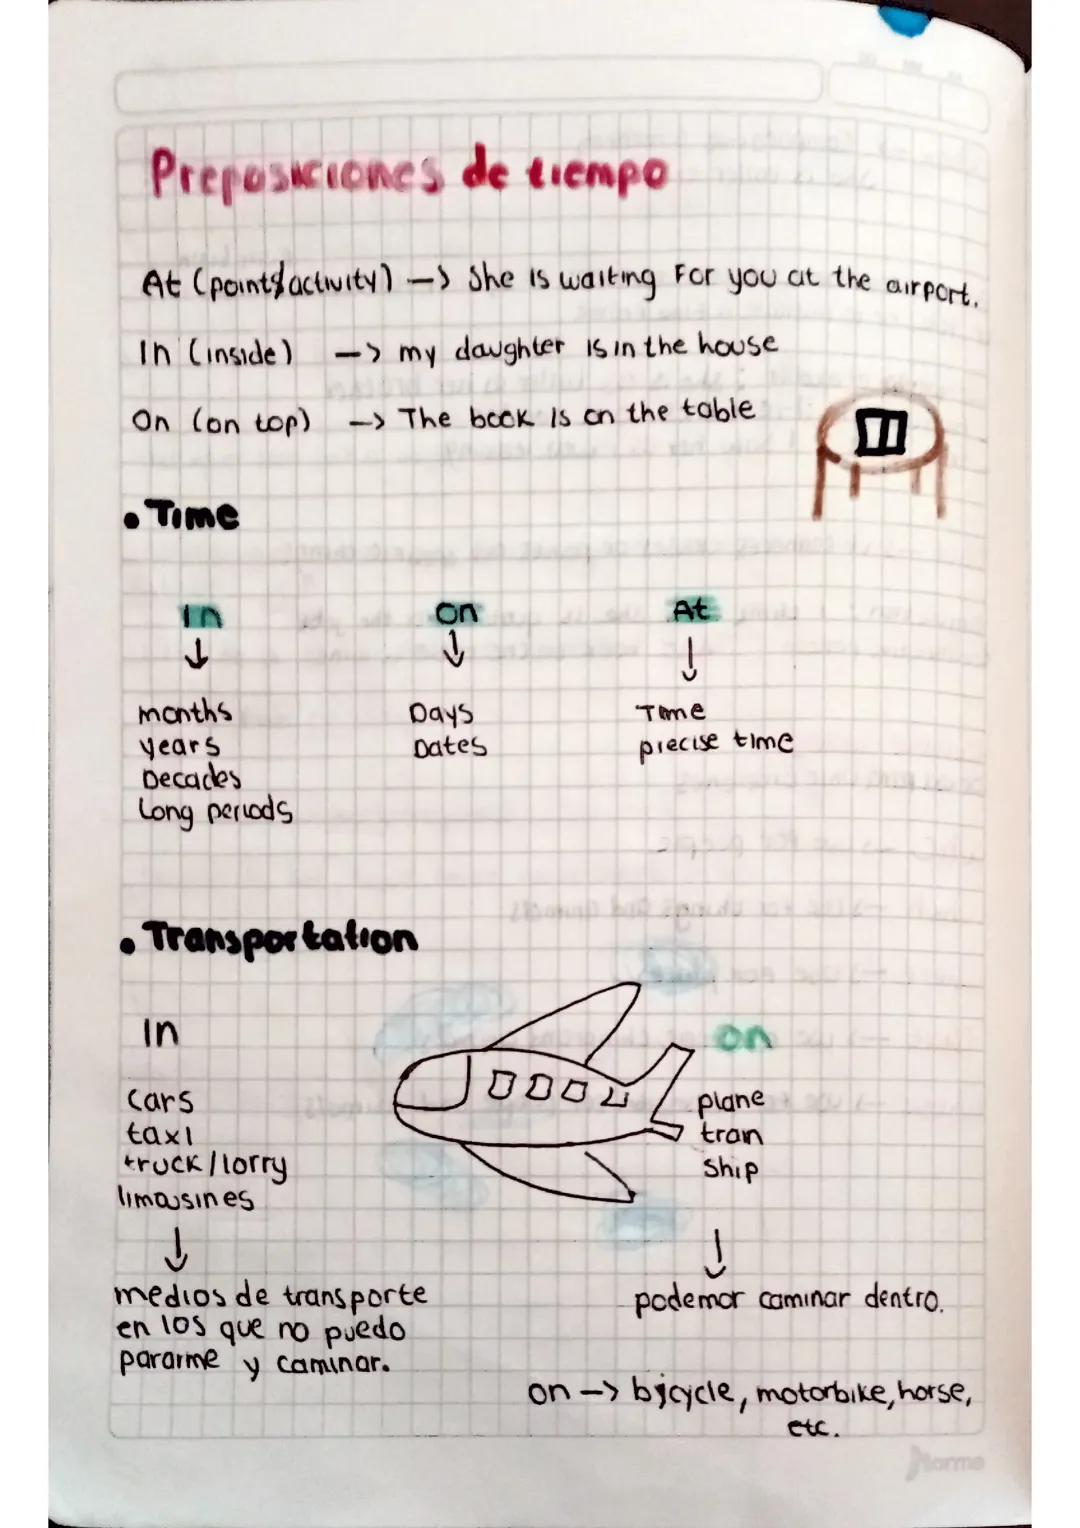 Preposiciones de tiempo
At (point/activity) —> She is waiting For you at the airport.
In (inside) —> my daughter is in the house
On (on top) —> The book is on the table
• Time
In On At
months Days Time
years Dates precise time
Decades
Long periods
• Transportation
In on
cars plane
taxi train
truck/lorry ship
limousines
medios de transporte podemor caminar dentro.
en los que no puedo
pararme y caminar.
on —> bicycle, motorbike, horse,
etc.
Norma